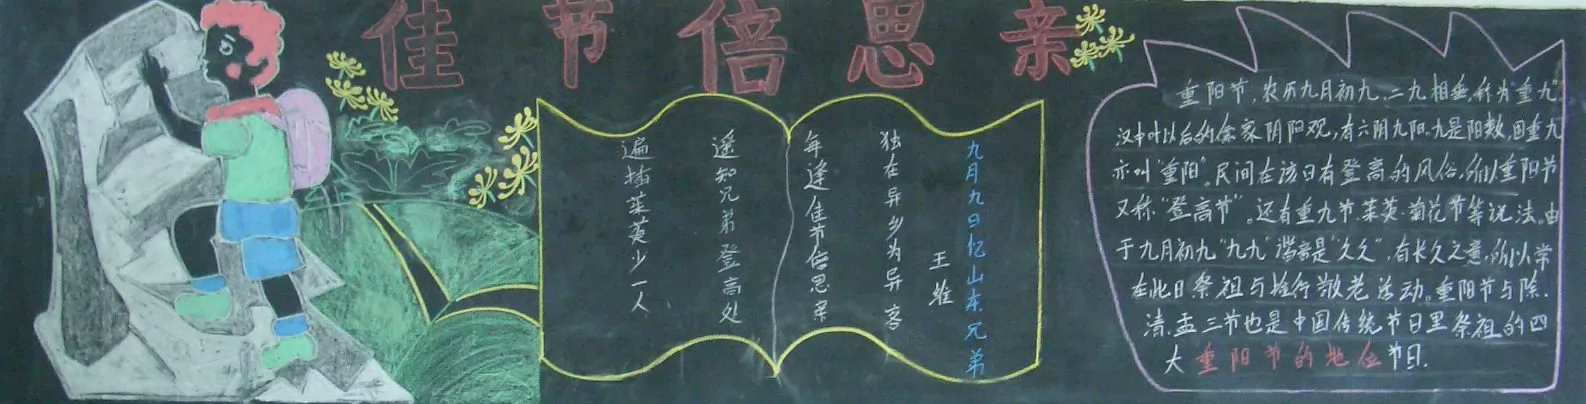 佳节倍思亲
九月九日忆山东兄弟
王维
独在异乡为异客
每逢佳节倍思亲
遥知兄弟登高处
遍插茱萸少一人
重阳节,农历九月初九,二九相重,称为"重九".
汉中叶以后的儒家阴阳观,有六阴九阳.九是阳数,固重九
亦叫"重阳"。民间在该日有登高的风俗,所以重阳节
又称"登高节"。还有重九节.茱萸.菊花节等说法.由
于九月初九"九九"谐音是"久久".有长久之意,所以常
在此日祭祖与推行敬老活动。重阳节与除.
清.盂三节也是中国传统节日里祭祖的四
大重阳节的地位节日.